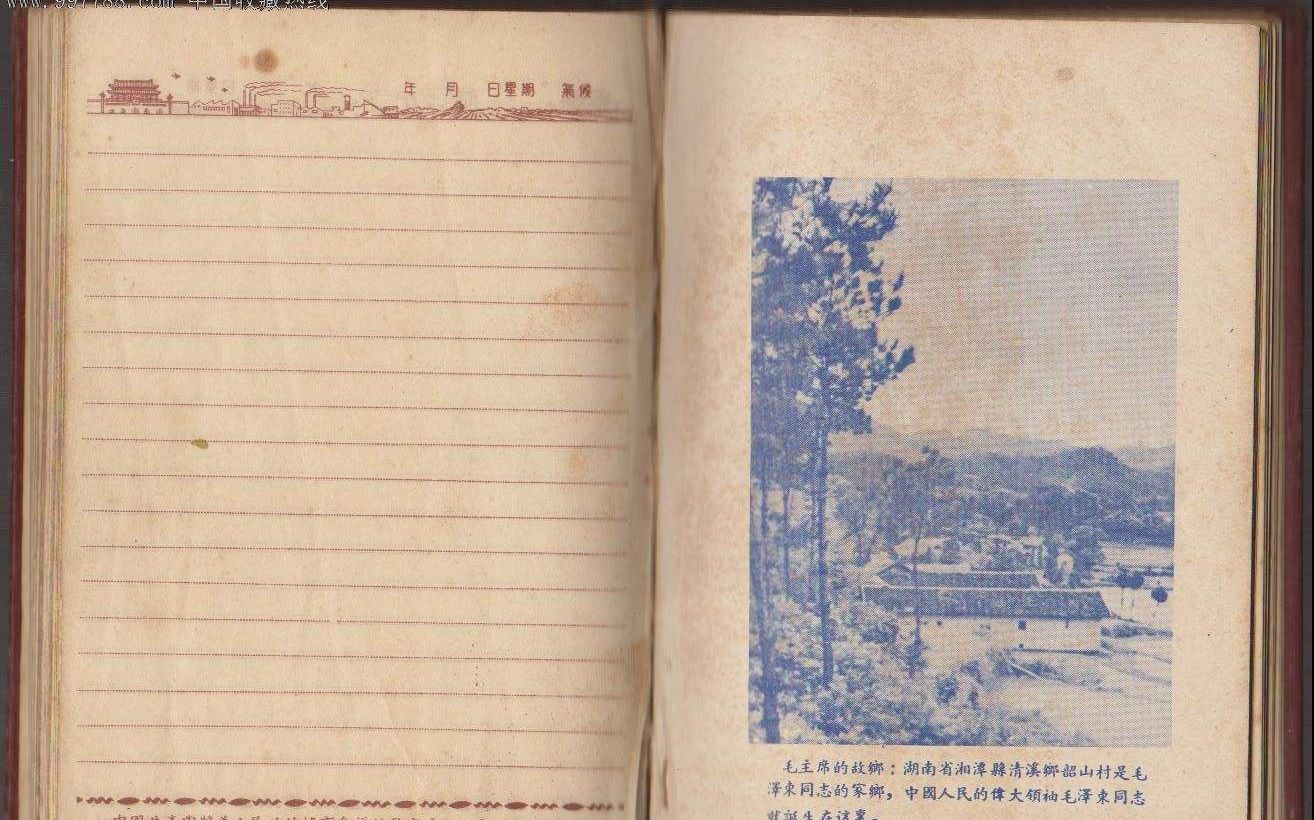 www.997788.com 中国收藏热线
年 月 日星期 氣候
毛主席的故鄉：湖南省湘潭縣清溪鄉韶山村是毛
澤東同志的家鄉，中國人民的偉大領袖毛澤東同志
就誕生在這裏。